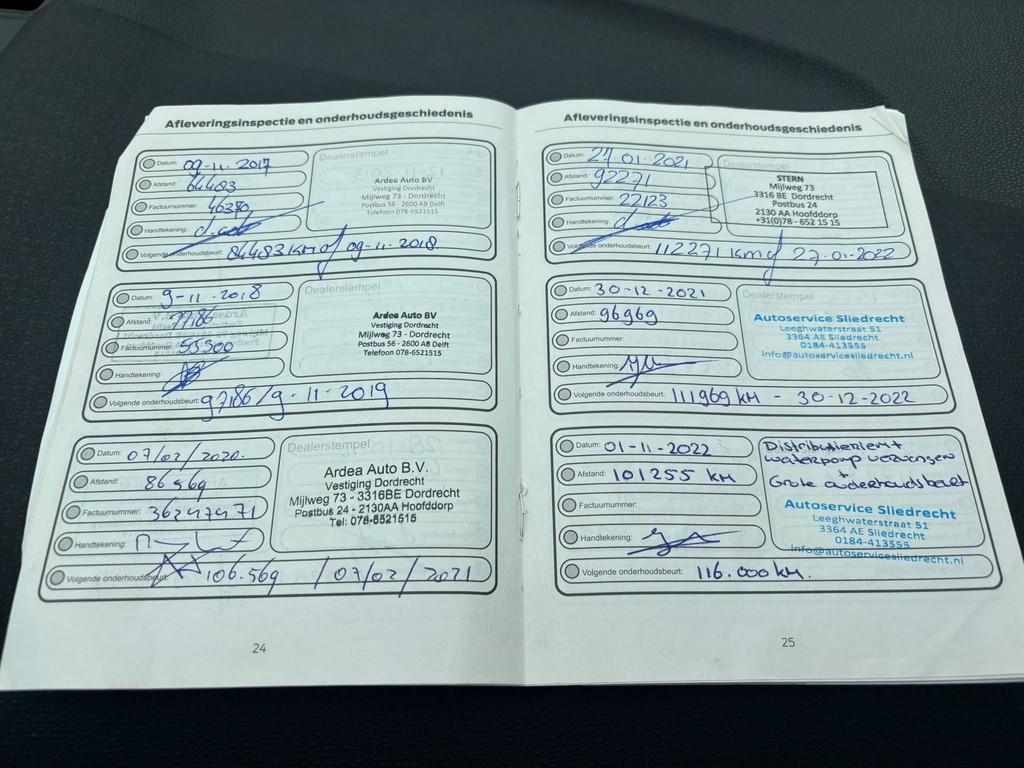 Afleveringsinspectie en onderhoudsgeschiedenis
Datum: 09-11-2017
Afstand: 64483
Factuurnummer: 46370
Handtekening:
Volgende onderhoudsbeurt: 84483 km of 09-11-2018
Dealerstempel
Ardea Auto BV
Vestiging Dordrecht
Mijlweg 73 - Dordrecht
Postbus 56 - 2600 AB Delft
Telefoon 078-6521515
Datum: 9-11-2018
Afstand: 77186
Factuurnummer: 55300
Handtekening:
Volgende onderhoudsbeurt: 97186/9-11-2019
Dealerstempel
Ardea Auto BV
Vestiging Dordrecht
Mijlweg 73 - Dordrecht
Postbus 56 - 2600 AB Delft
Telefoon 078-6521515
Datum: 07/02/2020.
Afstand: 86569
Factuurnummer: 36247971
Handtekening:
Volgende onderhoudsbeurt: 106.569 / 07/02/2021
Dealerstempel
Ardea Auto B.V.
Vestiging Dordrecht
Mijlweg 73 - 3316BE Dordrecht
Postbus 24 - 2130AA Hoofddorp
Tel: 078-6521515
24
Afleveringsinspectie en onderhoudsgeschiedenis
Datum: 27-01-2021
Afstand: 92271
Factuurnummer: 22123
Handtekening:
Volgende onderhoudsbeurt: 112271 km of 27-01-2022
Dealerstempel
STERN
Mijlweg 73
3316 BE Dordrecht
Postbus 24
2130 AA Hoofddorp
+31(0)78 - 652 15 15
Datum: 30-12-2021
Afstand: 96969
Factuurnummer:
Handtekening:
Volgende onderhoudsbeurt: 111969 KM - 30-12-2022
Dealerstempel
Autoservice Sliedrecht
Leeghwaterstraat 51
3364 AE Sliedrecht
0184-413555
info@autoservicesliedrecht.nl
Datum: 01-11-2022
Afstand: 101255 KM
Factuurnummer:
Handtekening:
Volgende onderhoudsbeurt: 116.000 KM.
Distributieriem +
waterpomp vervangen
+
Grote onderhoudsbeurt
Autoservice Sliedrecht
Leeghwaterstraat 51
3364 AE Sliedrecht
0184-413555
info@autoservicesliedrecht.nl
25